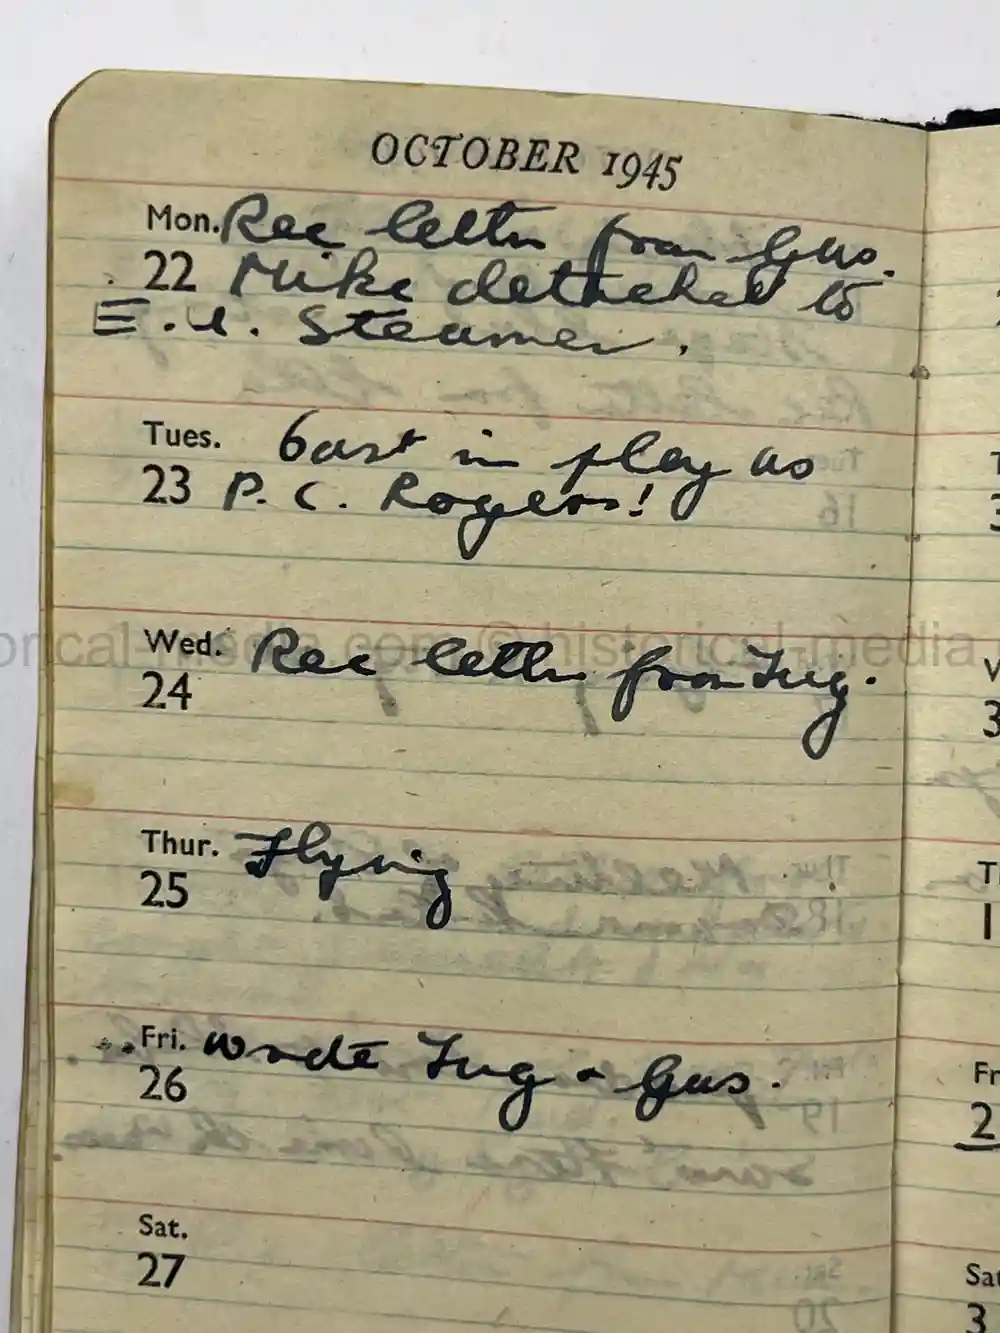 OCTOBER 1945
Mon. Rec letter from Gus.
22 Mike detached to
E.I. Steamer.
Tues. Cast in play as
23 P.C. Rogers!
Wed. Rec letter from Tug.
24
Thur. Flying
25
Fri. Wrote Tug & Gus.
26
Sat.
27
historical-media.com © historical-media
Fr
2
Sat
3